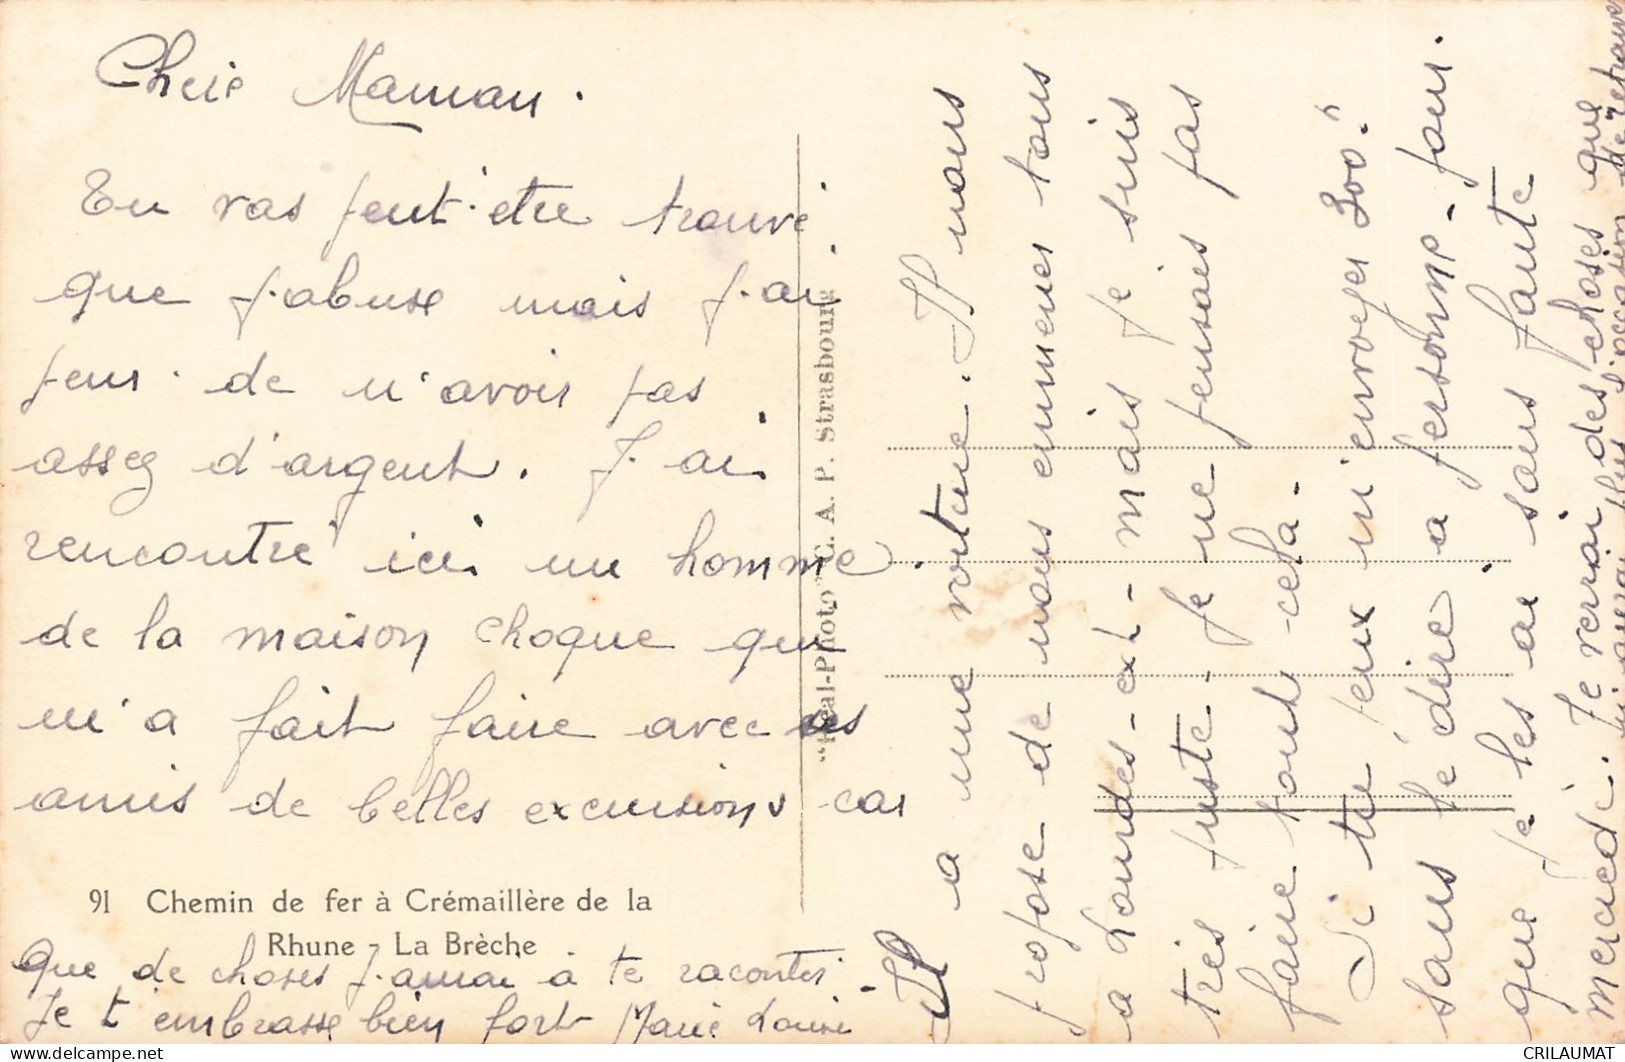 Cherie Maman.
Tu vas peut-etre trouver
que j'abuse mais j'ai
peur de n'avoir pas
assez d'argent. J'ai
rencontré ici un homme
de la maison Choque qui
m'a fait faire avec ses
amis de belles excursions car
Il a une voiture. Il nous
propose de nous emmener tous
a Lourdes - ect - mais je suis
très juste - je ne pensais pas
faire tout cela -
Si tu peux m'envoyer 300?"
sans le dire a personne - pour
que je les ai sans faute
mercredi. Je verrai des choses que
plus l'occasion de retrouver
que de choses j'aurai à te raconter -
Je t'embrasse bien fort Marie Louise
91 Chemin de fer à Crémaillère de la
Rhune - La Brèche
"Réal-Photo" C. A. P. Strasbourg
CRILAUMAT